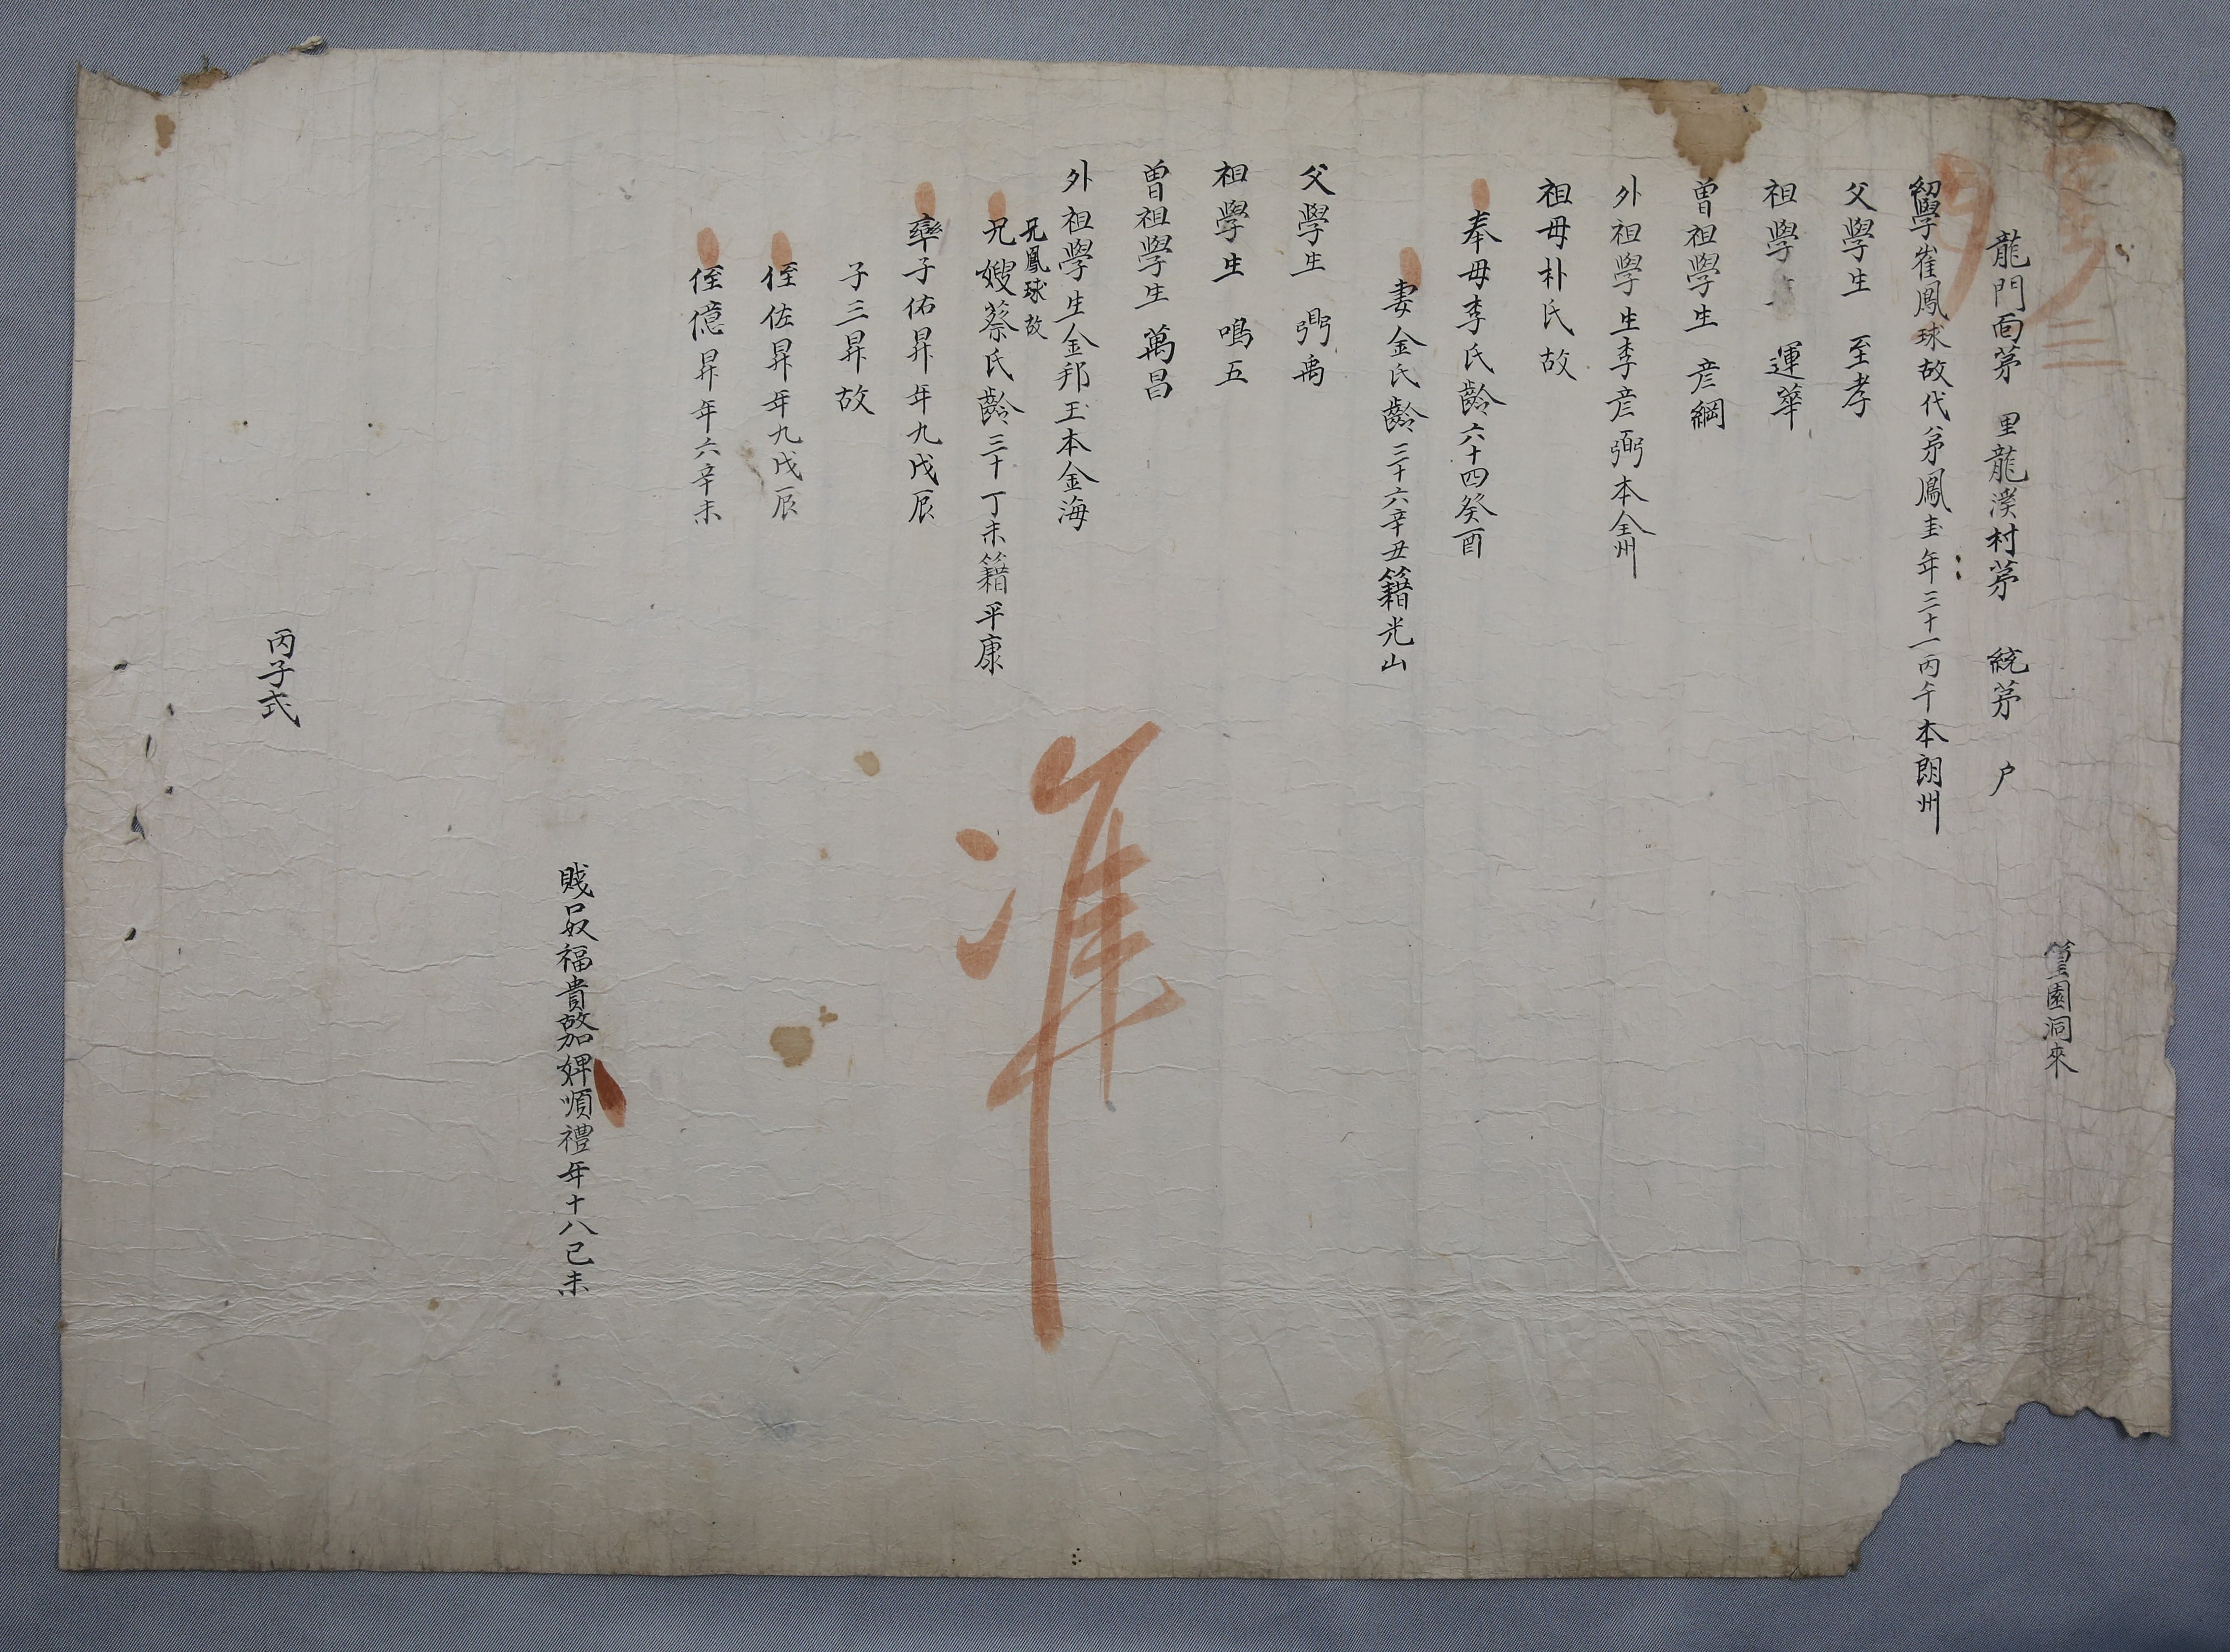 園洞來
龍門面第 里龍溪村第 統第 户
幼學崔鳳球故代弟鳳圭年三十一丙午本朗州
父學生 至孝
祖學生 運華
曾祖學生 彦綱
外祖學生李彦弼本全州
祖母朴氏故
奉母李氏齡六十四癸酉
妻金氏齡三十六辛丑籍光山
父學生 弼禹
祖學生 鳴五
曾祖學生 萬昌
外祖學生金邦玉本金海
兄鳳球故
兄嫂蔡氏齡三十丁未籍平康
率子佑昇年九戊辰
子三昇故
侄佐昇年九戊辰
侄億昇年六辛未
賤口奴福貴故加婢順禮年十八己未
丙子式
准